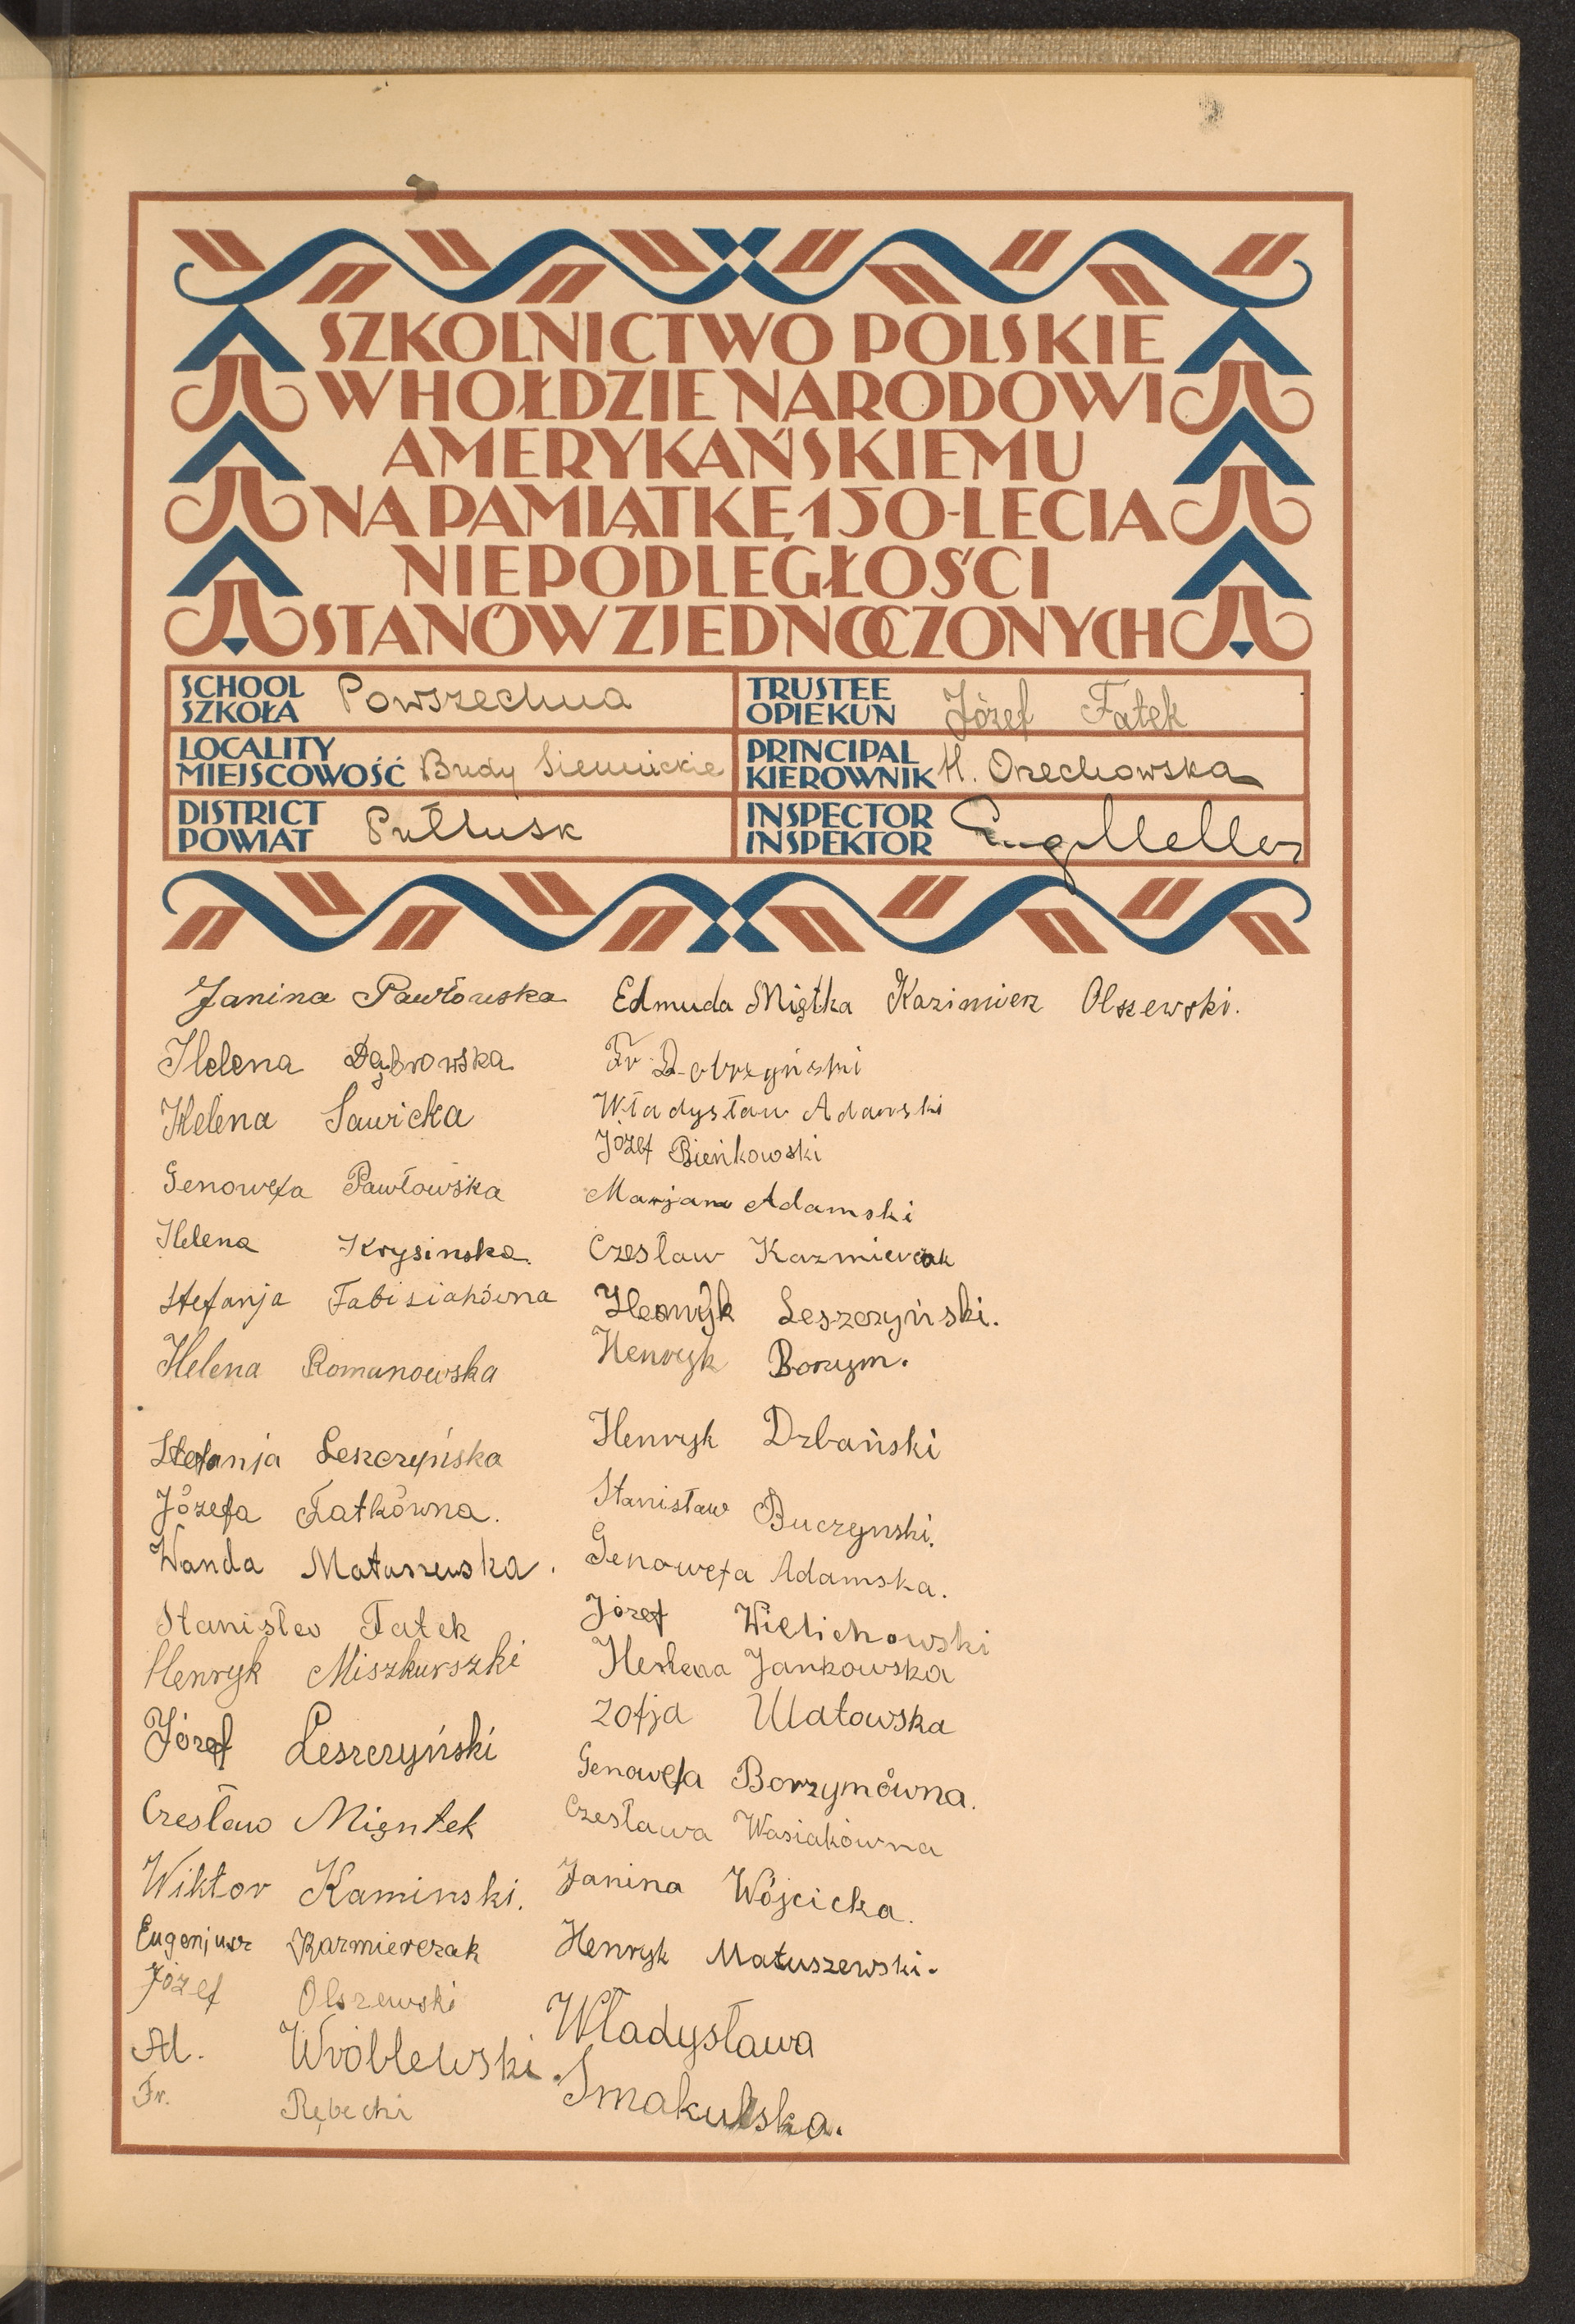 SZKOLNICTWO POLSKIE
W HOŁDZIE NARODOWI
AMERYKAŃSKIEMU
NA PAMIĄTKĘ 150-LECIA
NIEPODLEGŁOŚCI
STANÓW ZJEDNOCZONYCH
SCHOOL
SZKOŁA Powszechna
TRUSTEE
OPIEKUN Józef Fatek
LOCALITY
MIEJSCOWOŚĆ Budy Siennickie
PRINCIPAL
KIEROWNIK H. Orzechowska
DISTRICT
POWIAT Pułtusk
INSPECTOR
INSPEKTOR
Janina Pawłowska
Helena Dąbrowska
Helena Sawicka
Genowefa Pawłowska
Helena Krysinska.
Stefanja Fabisiakówna
Helena Romanowska
Stefanja Leszczyńska
Józefa Fatkówna.
Wanda Matuszewska.
Stanisłew Fatek
Henryk Miszkurszki
Józef Leszczyński
Czesław Mięntek
Wiktor Kaminski.
Eugenjusz Kazmierczak
Józef Olszewski
Ad. Wróblewski.
Fr. Rębecki
Edmuda Miętka
Fr Dobrzyński
Władysław Adamski
Józef Bieńkowski
Marjan Adamski
Czesław Kazmierczak
Henryk Leszczyński.
Henryk Borzym.
Henryk Dzbański
Stanisław Buczynski.
Genowefa Adamska.
Józef Wielichowski
Helena Jankowska
Zofja Ulatowska
Genowefa Borzymówna.
Czesława Wasiakówna
Janina Wójcicka.
Henryk Matuszewski.
Władysława
Smakulska.
Kazimierz Olszewski.